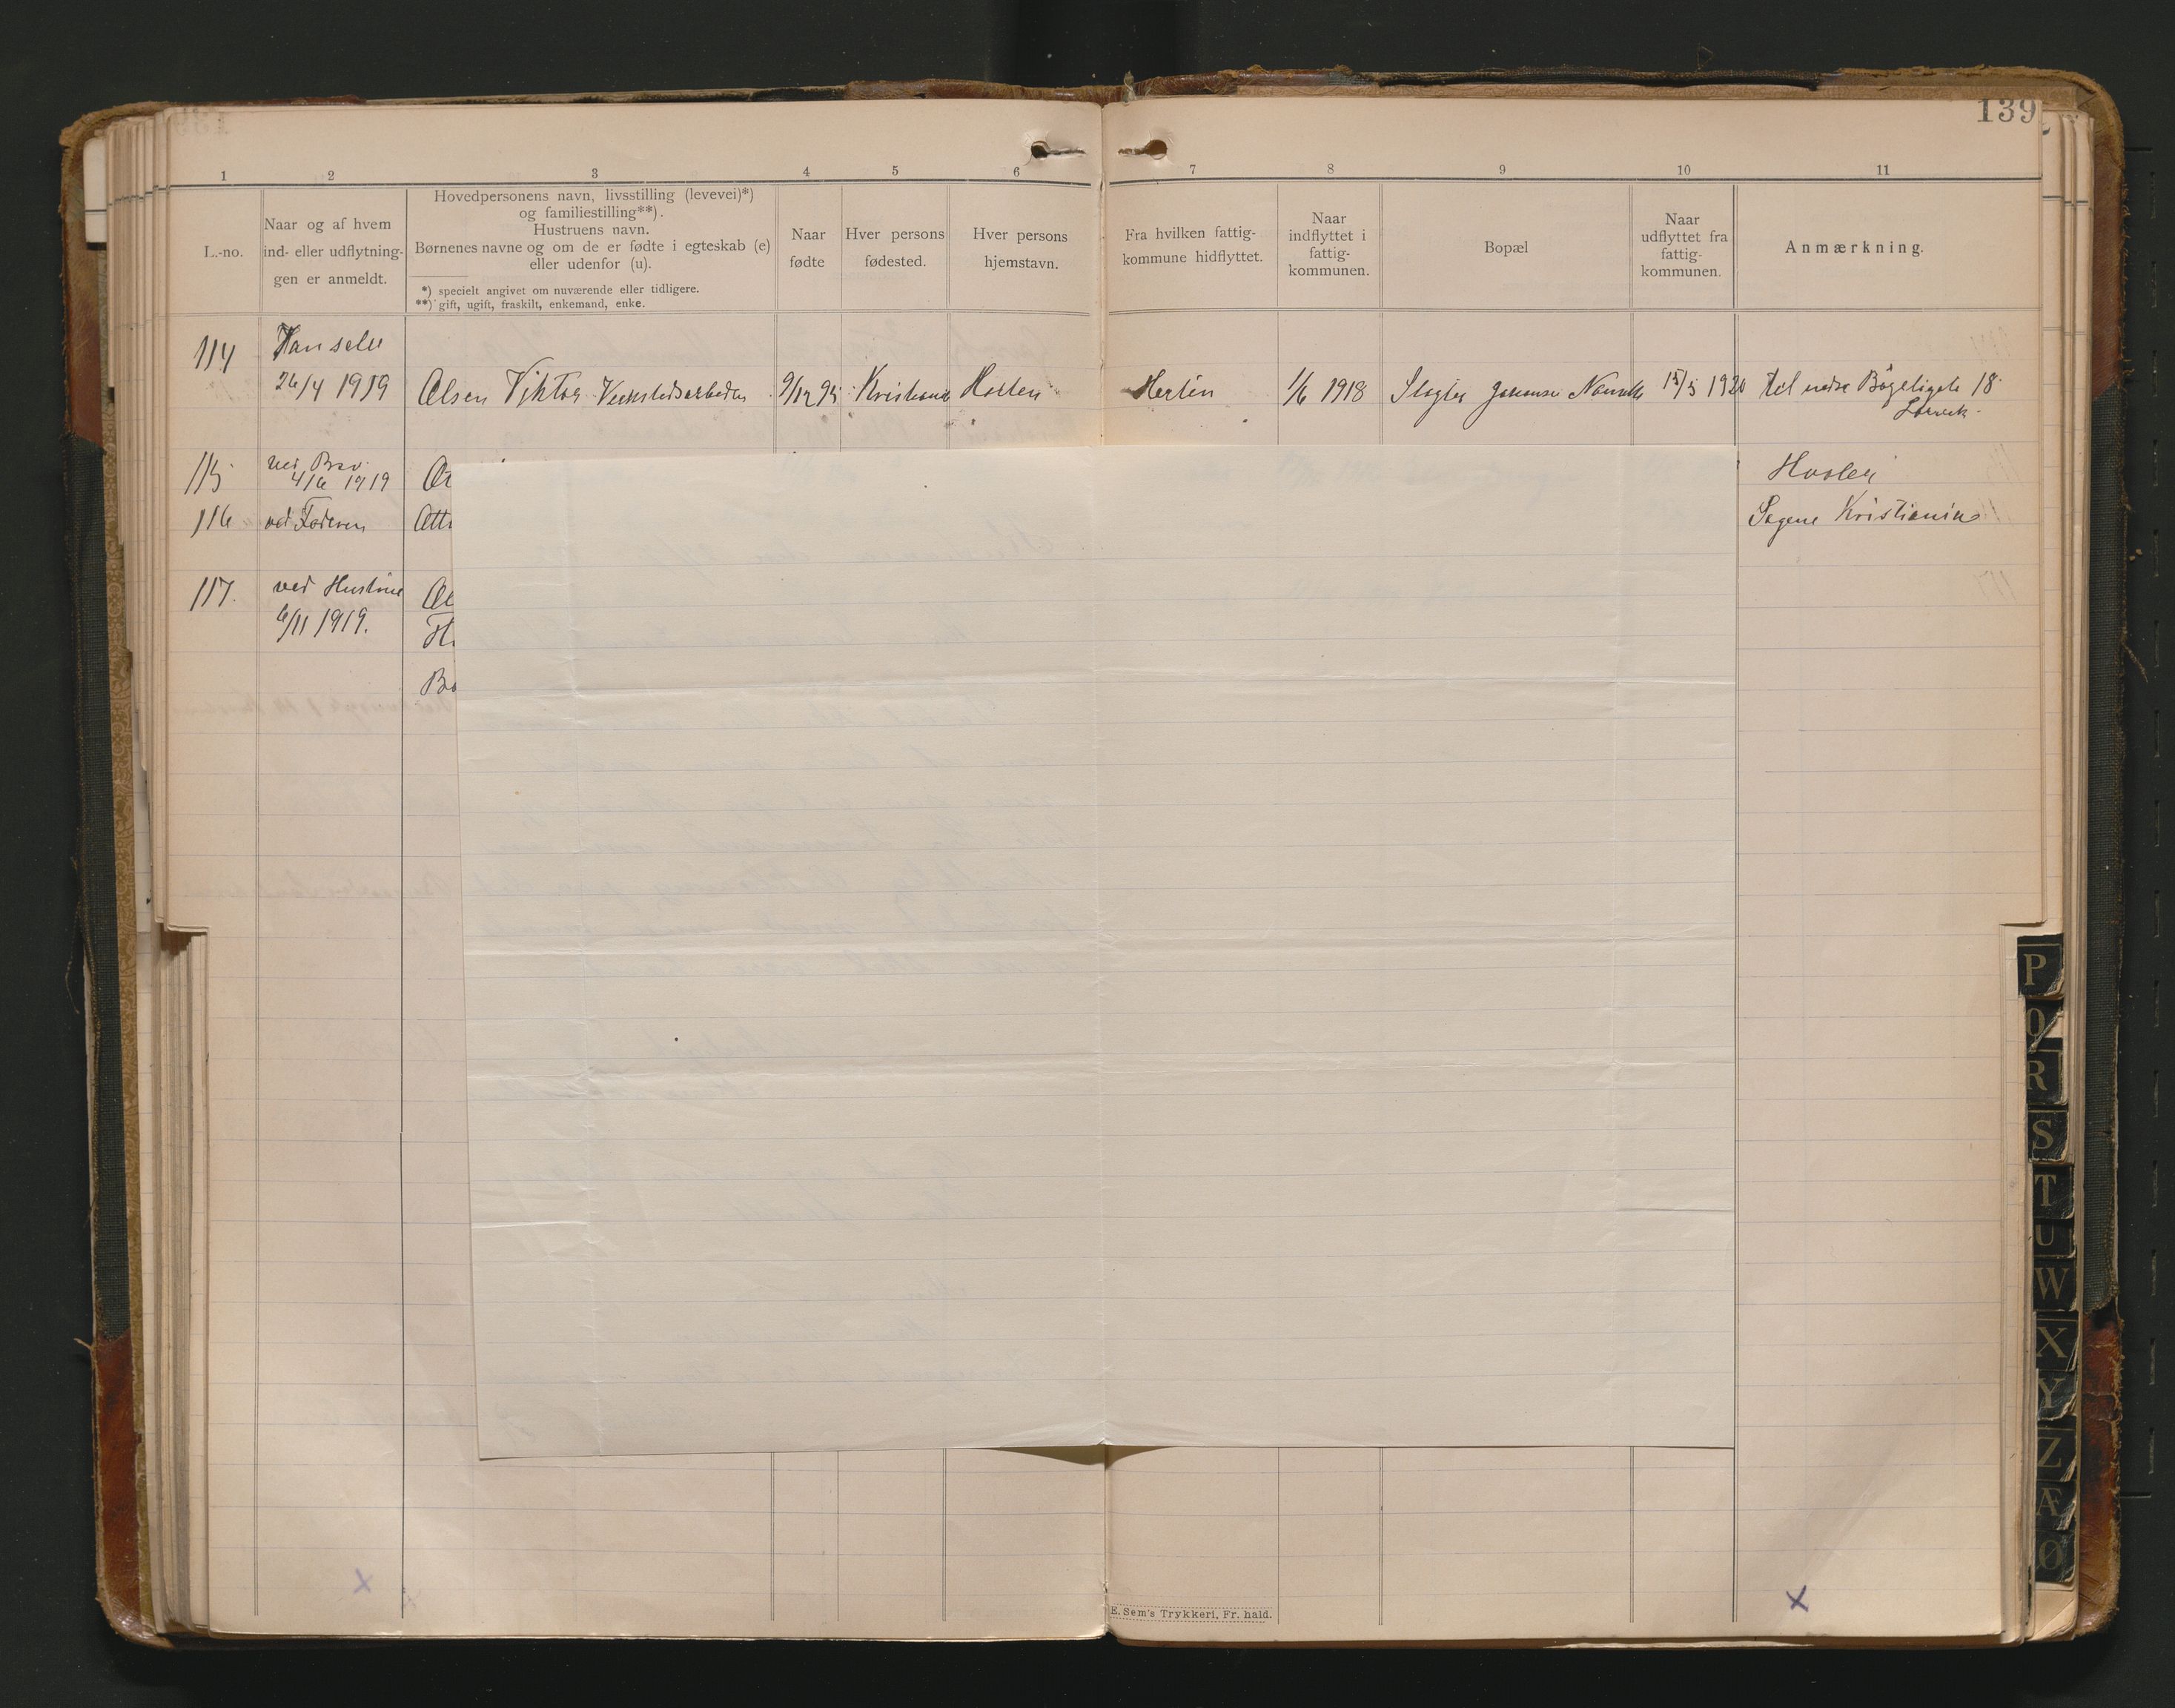 139
1 2 3 4 5 6 7 8 9 10 11
L.-no.
Naar og af hvem
ind- eller udflytnin-
gen er anmeldt.
Hovedpersonens navn, livsstilling (levevei)*)
og familiestilling**).
Hustruens navn.
Børnenes navne og om de er fødte i egteskab (e)
eller udenfor (u).
*) specielt angivet om nuværende eller tidligere.
**) gift, ugift, fraskilt, enkemand, enke.
Naar
fødte
Hver persons
fødested.
Hver persons
hjemstavn.
Fra hvilken fattig-
kommune hidflyttet.
Naar
indflyttet i
fattig-
kommunen.
Bopæl
Naar
udflyttet fra
fattig-
kommunen.
Anmærkning.
114 Han selv
26/4 1919 Olsen Viktor Verkstedsarbeider 9/12 95 Kristiania Horten Horten 1/6 1918 Slagter Johansen Nanset 15/5 1920 til nedre Bøgeligate 18
Larvik
115 ved Brev
4/6 1919 Hvaler
116 ved Faderen Ott Sagene Kristiania
117. ved Hustrue Ol
6/11 1919. H
Bø
P
Q
R
S
T
U
W
X
Y
Z
Æ
Ø
x
x
E. Sem's Trykkeri, Fr. hald.